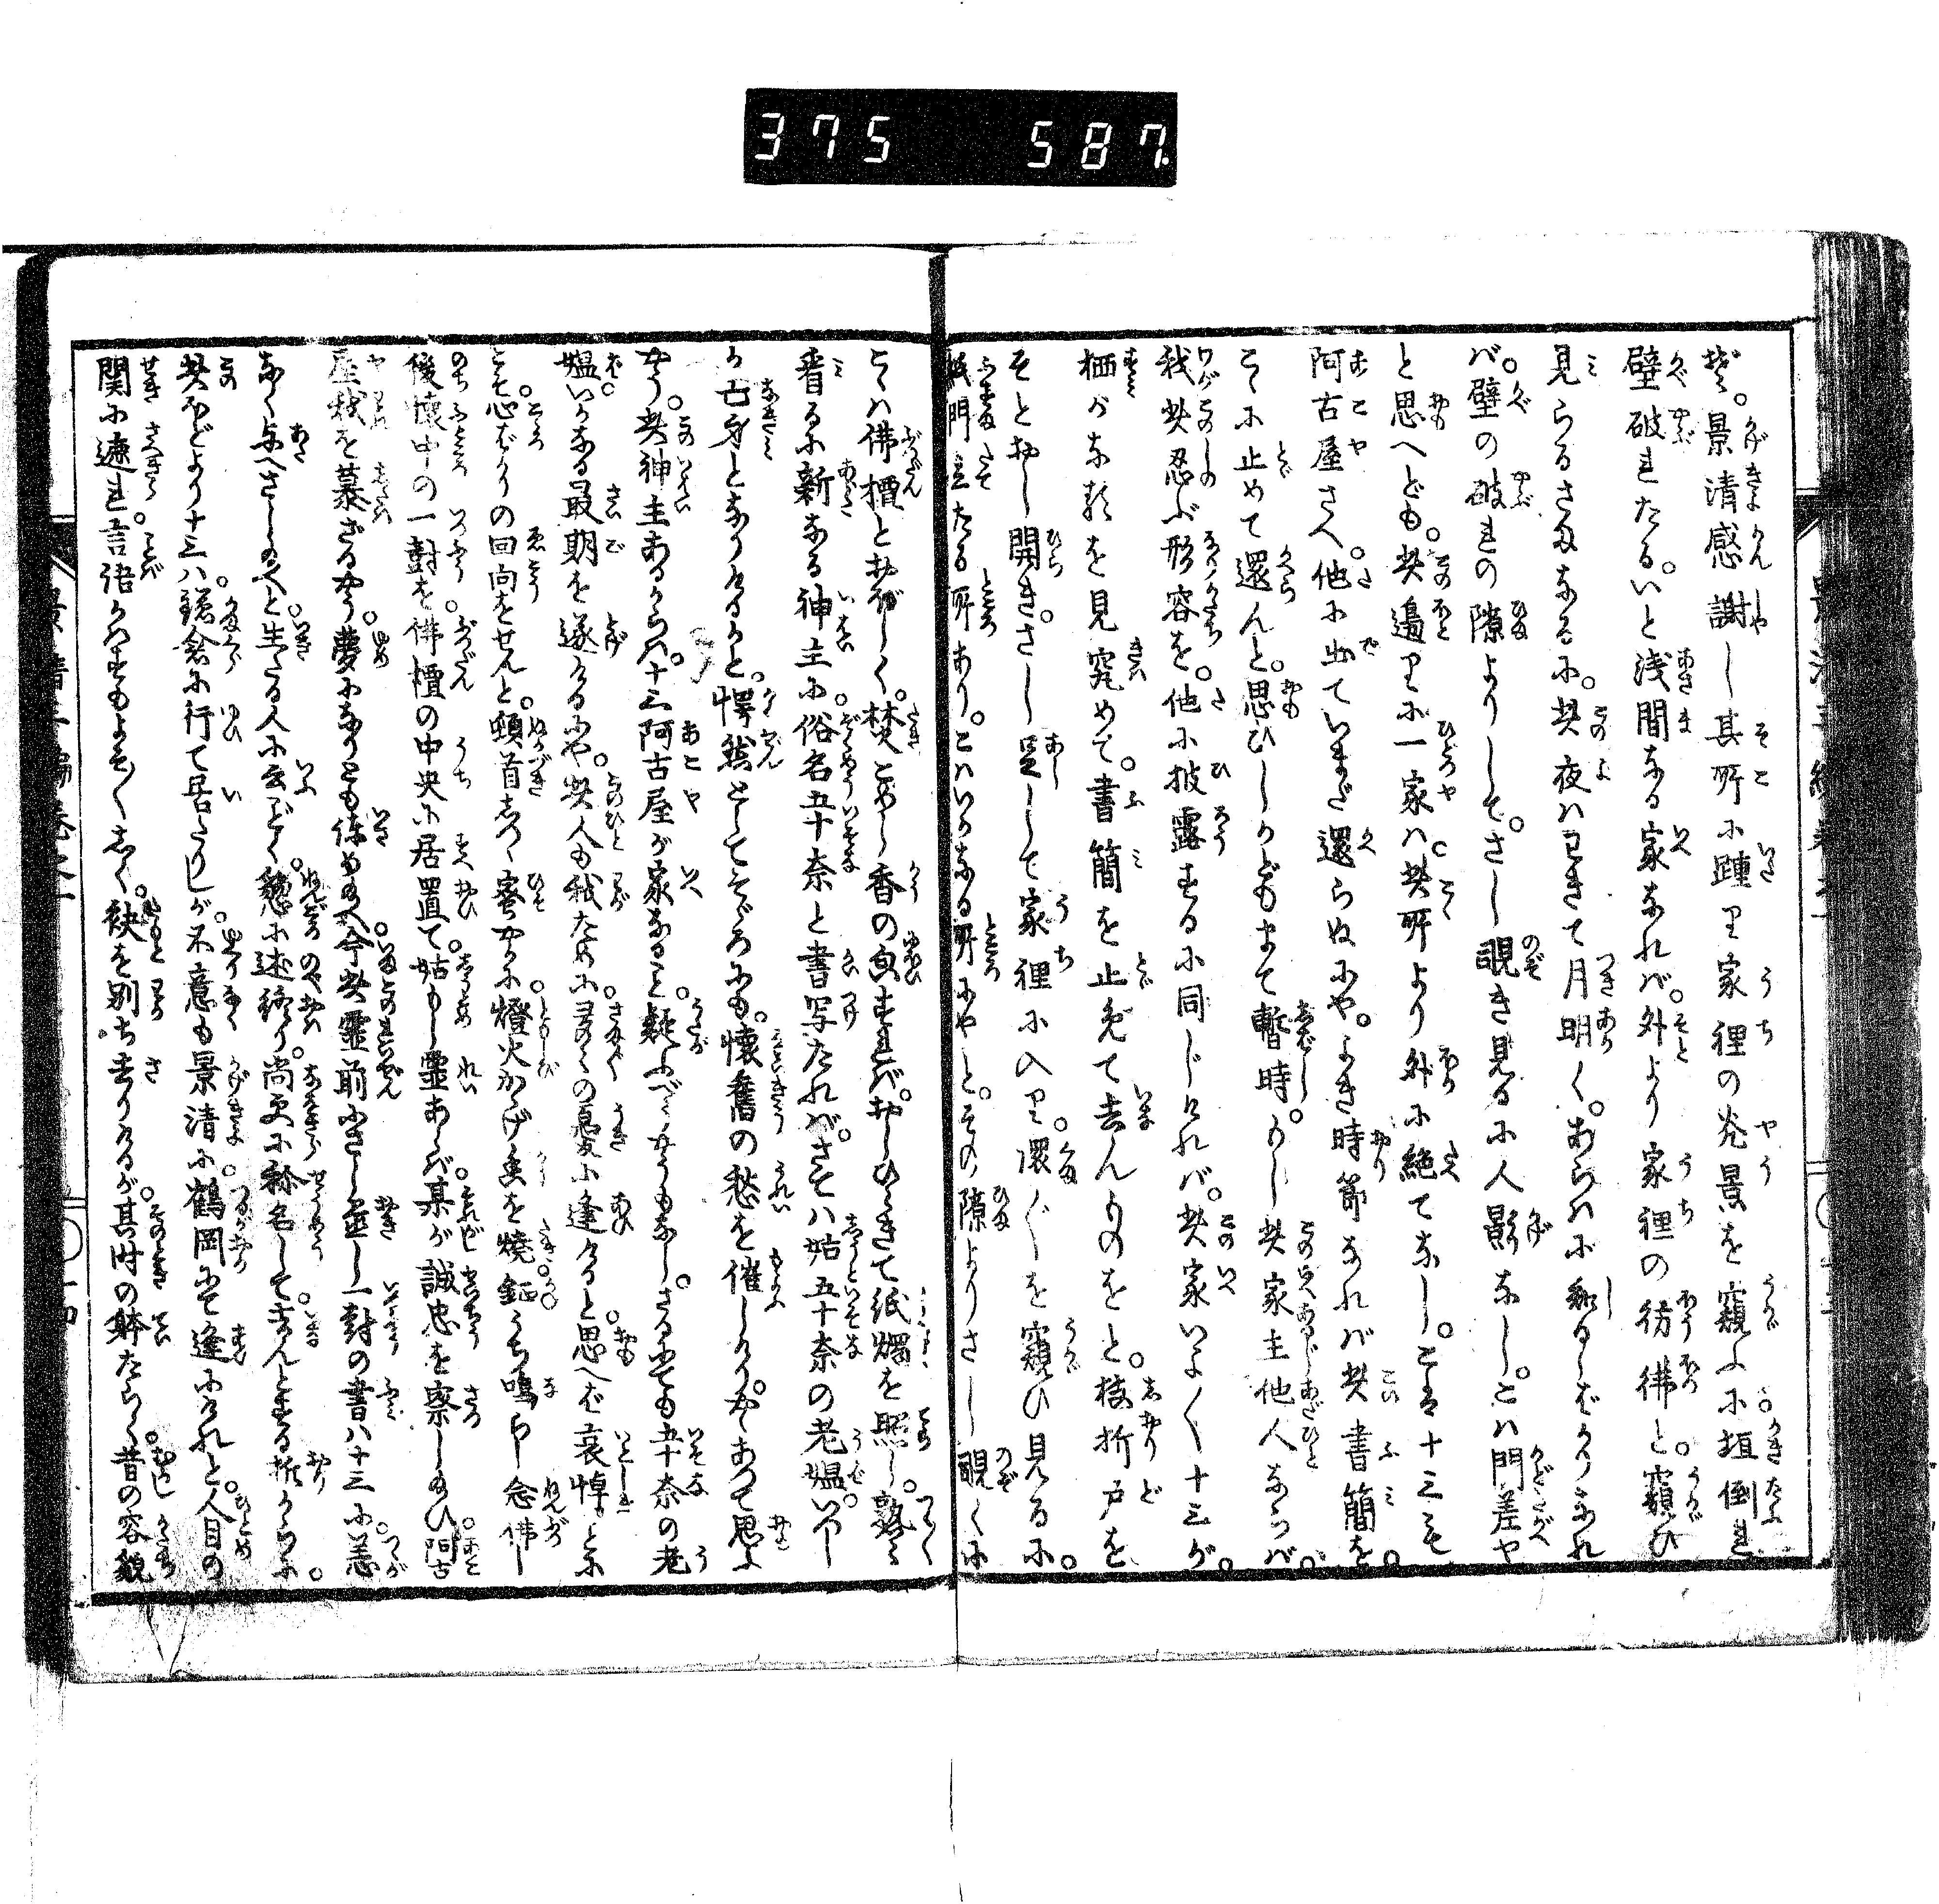 375 587
ぞ。景清感謝し其所に踵り家裡の光景を窺ふに。垣倒れ
壁破れたる。いと浅間なる家なれバ。外より家裡の彷彿と。窺ひ
見らるさまなるに。此夜ハわきて月明く。あらハに知るゝばかりなれ
バ。壁の破れの隙よりして。さし覗き見るに人影なし。こハ門差や
と思へども。此邉りに一家ハ此所より外に絶てなし。こは十三も
阿古屋さへ。他に出ていまだ還らぬにや。よき時節なれバ此書簡を。
こゝに止めて還んと。思ひしかどもまて暫時。もし此家主他人ならバ。
我此忍ぶ形容を。他に披露するに同じけれバ。此家いよ〱十三が。
栖かな熟を見究めて。書簡を止めて去んものをと。枝折戸を
そとおし開き。さし足して家裡に入り。隈ぐを窺ひ見るに。
紙門立たる所あり。こハいかなる所にやと。その隙よりさし覗くに
こハ佛檀とおぼしく。焚こめし香の匂すれバ。おしひらきて紙燭を照し。熟〻
看るに新なる神主に。俗名五十奈と書写たれバ。さてハ姑五十奈の老媼いし
か亡身となりけるかと。愕然としてそゞろにも。懐舊の愁を催しけり。かくあつて思ふ
やう。此神主あるからハ。十三阿古屋が家なること。疑ふべくやうもなし。さるにても五十奈の老
媼いかなる最期を遂けるにや。此人も我ために。さま〲の憂に逢けると。思へば哀悼ことに
こそ。心ばかりの回向をせんと。頓首しつゝ密やかに。燈火かゝげ香を焼。鉦うち鳴らし念佛し
後懐中の一封を。佛檀の中央に居置て。姑もし霊あらバ。某が誠忠を察し給ひ。阿古
屋我を慕ざるやう。夢になりとも諫め給へ。今此霊前にさし置し一封の書ハ十三に。恙
なく与へさし給へと。生たる人に云ごとく。慇に述終り。尚更に称名して。去んとする折からに。
此ほどより十三ハ。鎌倉に行て居たりしが。不意も景清に。鶴岡にて逢にけれど。人目の
関に遮れ。言語かハすもよそ〱しく。袂を別ち去りけるが。其時の躰たらく。昔の容貌